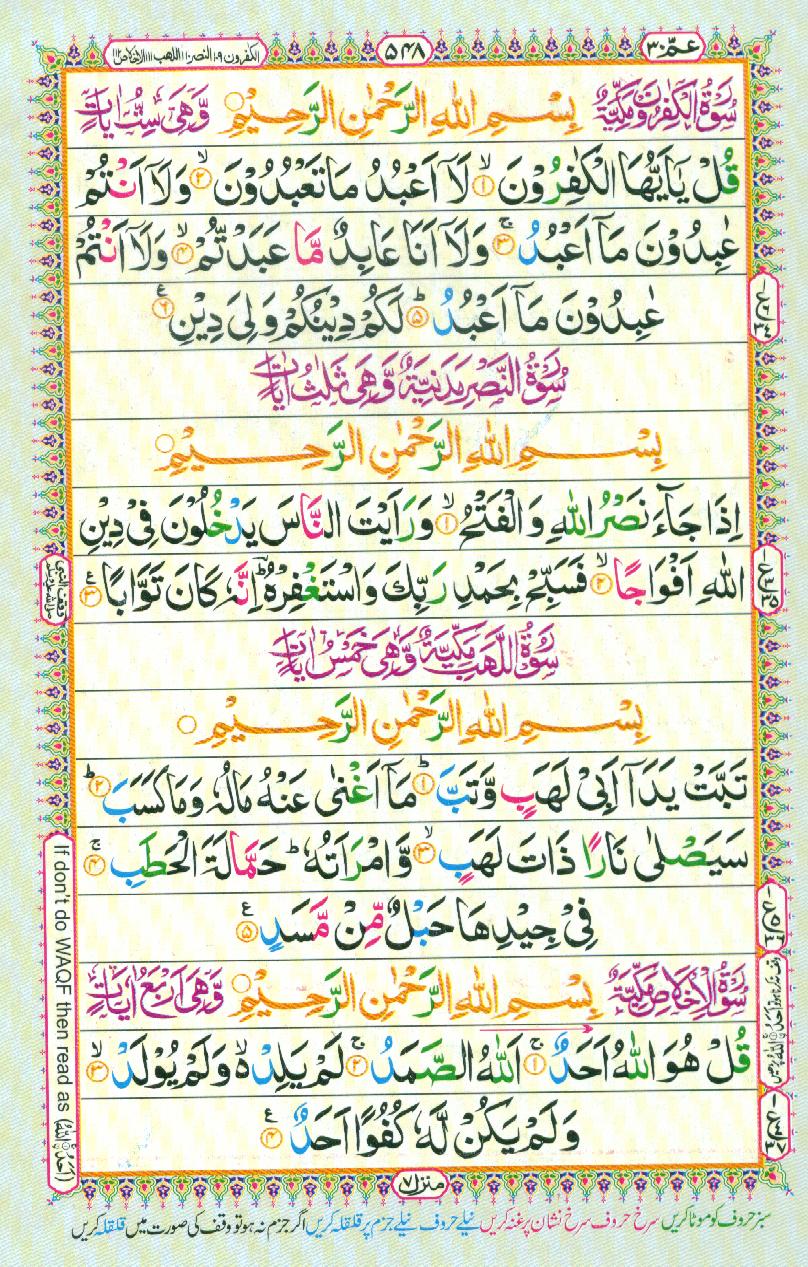 عمّ ٣٠
٥٤٨
الکٰفرون ١٠٩ النصر ١١٠ اللهب ١١١ الاخلاص ١١٢
سُوْرَةُ الْكٰفِرُوْنَ مَكِّيَّةٌ بِسْمِ اللهِ الرَّحْمٰنِ الرَّحِيْمِ وَّهِىَ سِتُّ اٰيَاتٍ
قُلْ يٰۤاَيُّهَا الْكٰفِرُوْنَ ۙ﴿١﴾ لَاۤ اَعْبُدُ مَا تَعْبُدُوْنَ ۙ﴿٢﴾ وَلَاۤ اَنْتُمْ
عٰبِدُوْنَ مَاۤ اَعْبُدُ ۚ﴿٣﴾ وَلَاۤ اَنَا عَابِدٌ مَّا عَبَدْتُّمْ ۙ﴿٤﴾ وَلَاۤ اَنْتُمْ
عٰبِدُوْنَ مَاۤ اَعْبُدُ ؕ﴿٥﴾ لَكُمْ دِيْنُكُمْ وَلِىَ دِيْنِ ﴿٦﴾ ع
سُوْرَةُ النَّصْرِ مَدَنِيَّةٌ وَّهِىَ ثَلٰثُ اٰيَاتٍ
بِسْمِ اللهِ الرَّحْمٰنِ الرَّحِيْمِ
اِذَا جَآءَ نَصْرُ اللهِ وَ الْفَتْحُ ۙ﴿١﴾ وَرَاَيْتَ النَّاسَ يَدْخُلُوْنَ فِىْ دِيْنِ
اللهِ اَفْوَاجًا ۙ﴿٢﴾ فَسَبِّحْ بِحَمْدِ رَبِّكَ وَاسْتَغْفِرْهُ ؕ اِنَّهٗ كَانَ تَوَّابًا ﴿٣﴾ ع
وقف النبى صلى الله عليه وسلم
سُوْرَةُ اللَّهَبِ مَكِّيَّةٌ وَّهِىَ خَمْسُ اٰيَاتٍ
بِسْمِ اللهِ الرَّحْمٰنِ الرَّحِيْمِ
تَبَّتْ يَدَاۤ اَبِىْ لَهَبٍ وَّتَبَّ ؕ﴿١﴾ مَاۤ اَغْنٰى عَنْهُ مَالُهٗ وَمَا كَسَبَ ؕ﴿٢﴾
سَيَصْلٰى نَارًا ذَاتَ لَهَبٍ ۙ﴿٣﴾ وَّامْرَاَتُهٗ ؕ حَمَّالَةَ الْحَطَبِ ۚ﴿٤﴾
فِىْ جِيْدِهَا حَبْلٌ مِّنْ مَّسَدٍ ﴿٥﴾ ع
سُوْرَةُ الْاِخْلَاصِ مَكِّيَّةٌ بِسْمِ اللهِ الرَّحْمٰنِ الرَّحِيْمِ وَّهِىَ اَرْبَعُ اٰيَاتٍ
قُلْ هُوَ اللهُ اَحَدٌ ۚ﴿١﴾ اَللهُ الصَّمَدُ ۚ﴿٢﴾ لَمْ يَلِدْ ۙ۬ وَلَمْ يُوْلَدْ ۙ﴿٣﴾
وَلَمْ يَكُنْ لَّهٗ كُفُوًا اَحَدٌ ﴿٤﴾ ع
If don't do WAQF then read as
منزل ٧
سبز حروف کو موٹا کریں سرخ حروف سرخ نشان پر غنہ کریں نیلے حروف نیلے جزم پر قلقلہ کریں اگر جزم نہ ہو تو وقف کی صورت میں قلقلہ کریں